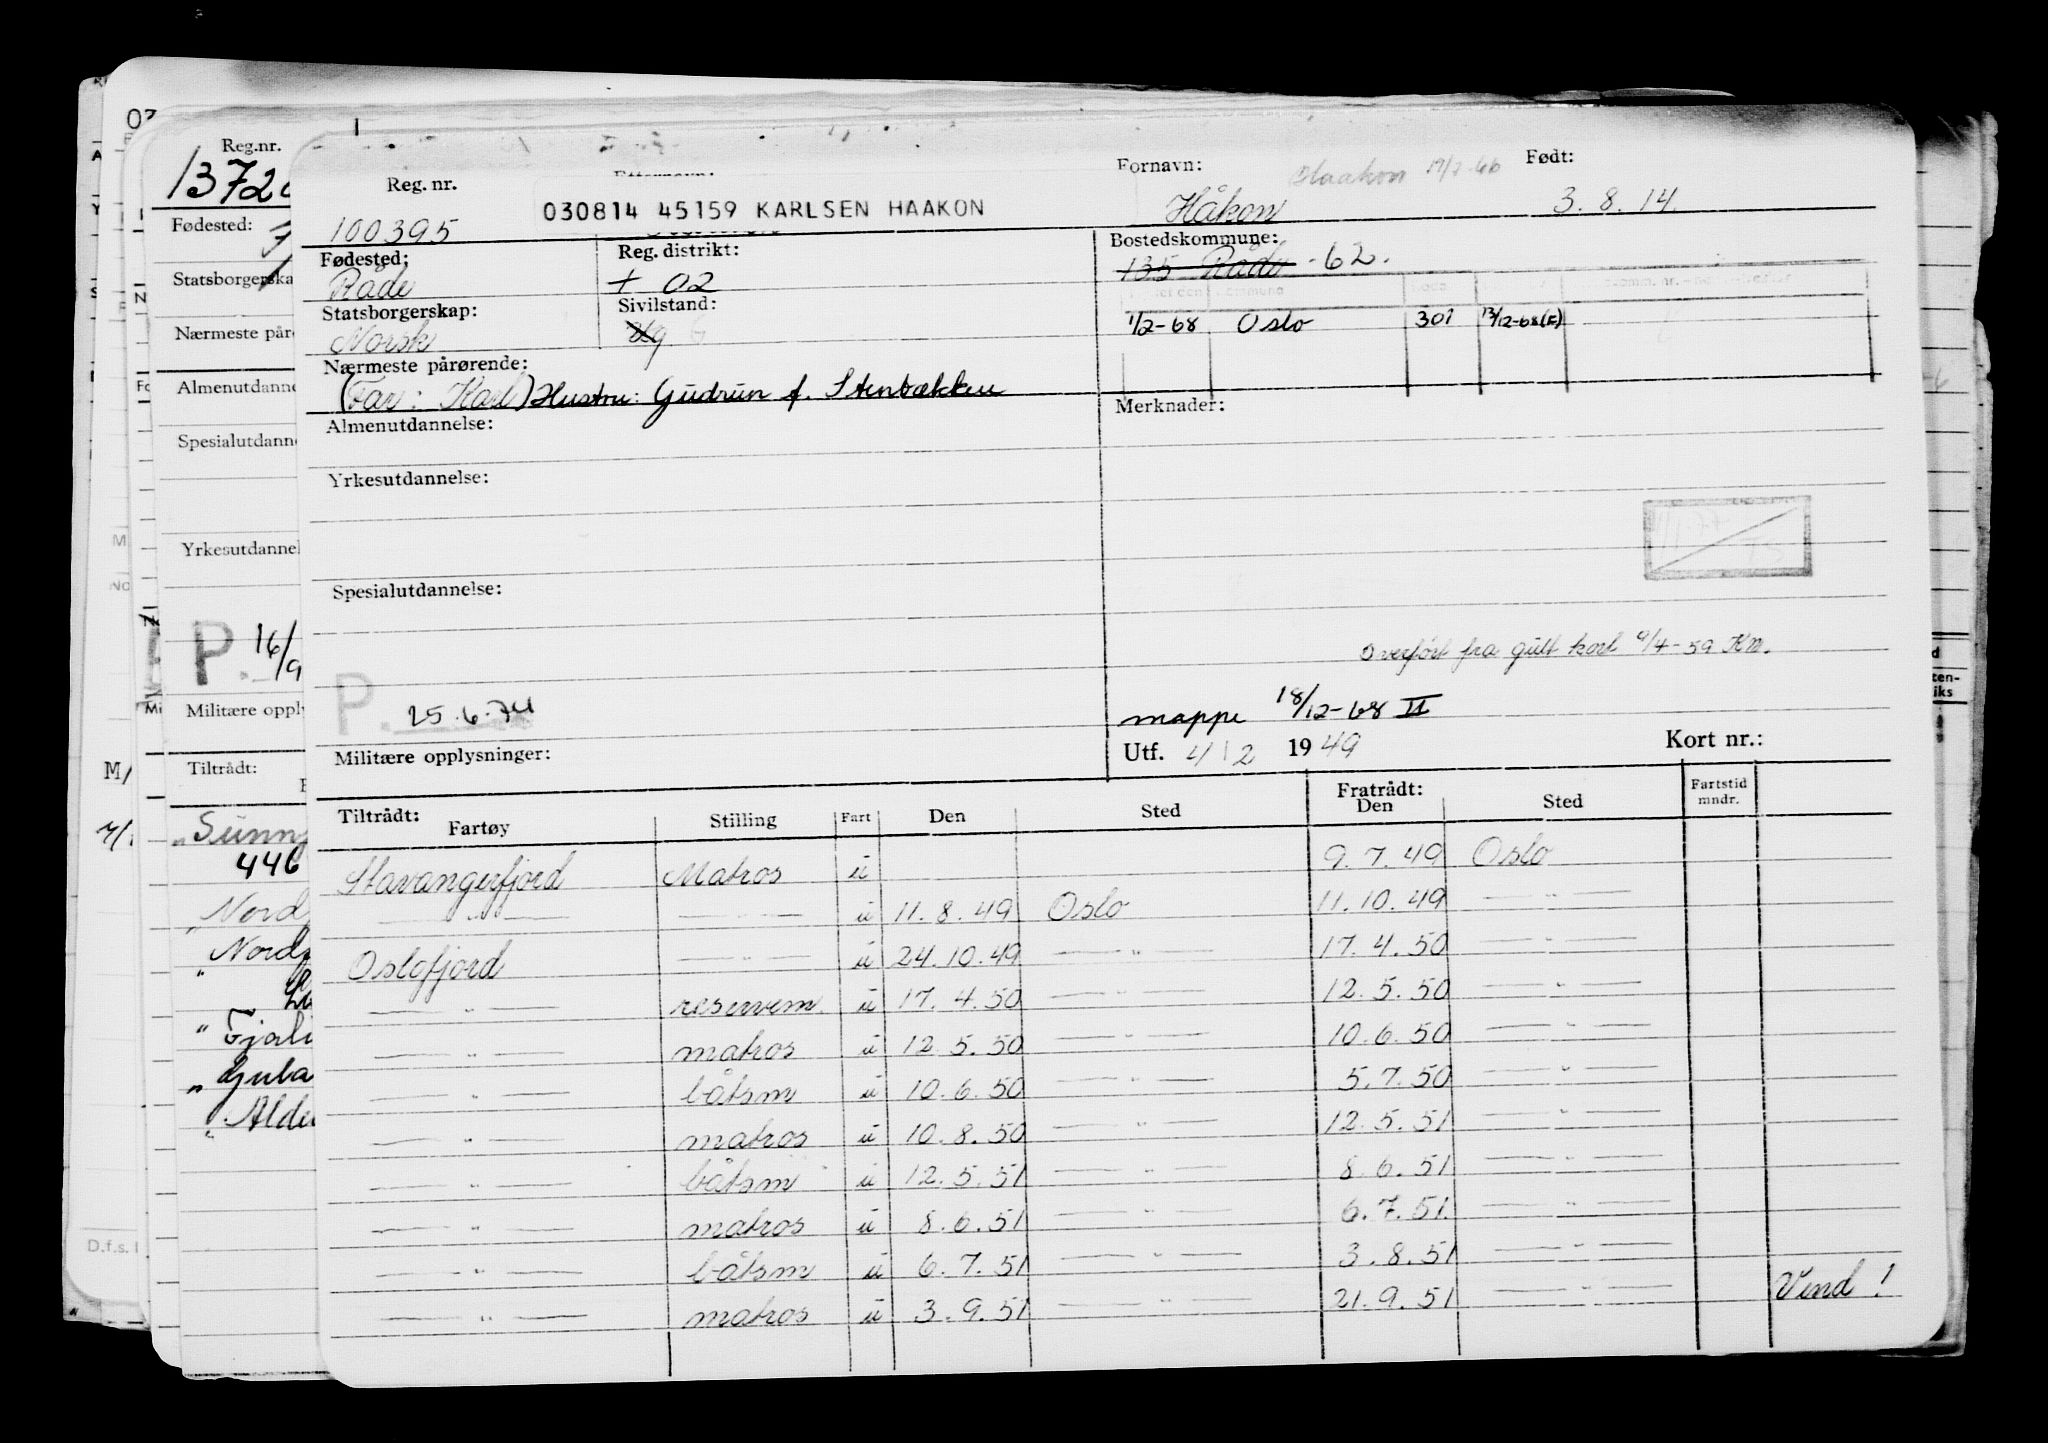 Reg. nr.
100395
030814 45159 KARLSEN HAAKON
Fornavn: Haakon
Håkon
Født:
3. 8. 14.
Fødested:
Råde
Reg. distrikt:
+ 02
Bostedskommune:
135 Råde - 62.
Statsborgerskap:
Norsk
Sivilstand:
Ug G
1/2-68 Oslo 301 13/12-68(F)
Nærmeste pårørende:
(Far: Karl) Hustru: Gudrun f. Stenbækken
Merknader:
Almenutdannelse:
Yrkesutdannelse:
Spesialutdannelse:
Overført fra gult kort 9/4-59 Km.
P. 25.6.74
mappe 18/12-68 II
Militære opplysninger:
Utf. 4/2 1949 Kort nr.:
Tiltrådt: Fratrådt:
Fartøy Stilling Fart Den Sted Den Sted Fartstid mndr.
Stavangerfjord Matros u 9.7.49 Oslo
— " — — " — u 11.8.49 Oslo 11.10.49 — " —
Oslofjord — " — u 24.10.49 — " — 17.4.50 — " —
— " — reservem. u 17.4.50 — " — 12.5.50 — " —
— " — matros u 12.5.50 — " — 10.6.50 — " —
— " — båtsm u 10.6.50 — " — 5.7.50 — " —
— " — matros u 10.8.50 — " — 12.5.51 — " —
— " — båtsm u 12.5.51 — " — 8.6.51 — " —
— " — matros u 8.6.51 — " — 6.7.51. — " —
— " — båtsm u 6.7.51 — " — 3.8.51 — " —
— " — matros u 3.9.51 — " — 21.9.51 — " — Vend!
Reg.nr.
1372
Fødested:
Statsborgerska
Nærmeste pår
Almenutdanne
Spesialutdann
Yrkesutdannel
P. 16/9
Militære oppl
Tiltrådt:
"Sunn
446
"Nord
"Nord
"Fjorli
"Guba
"Alde
03
M/
D.f.s.